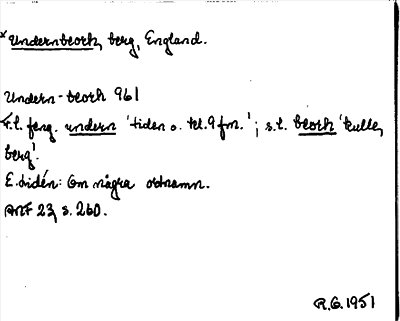 *Undernbeorh, berg, England.
Undern-beorh 961
F.l. feng. undern 'tiden o. kl. 9 fm.'; s.l. beorh 'kulle,
berg'.
E. Lidén: Om några ortnamn.
ANF 23, s. 260.
R.G. 1951